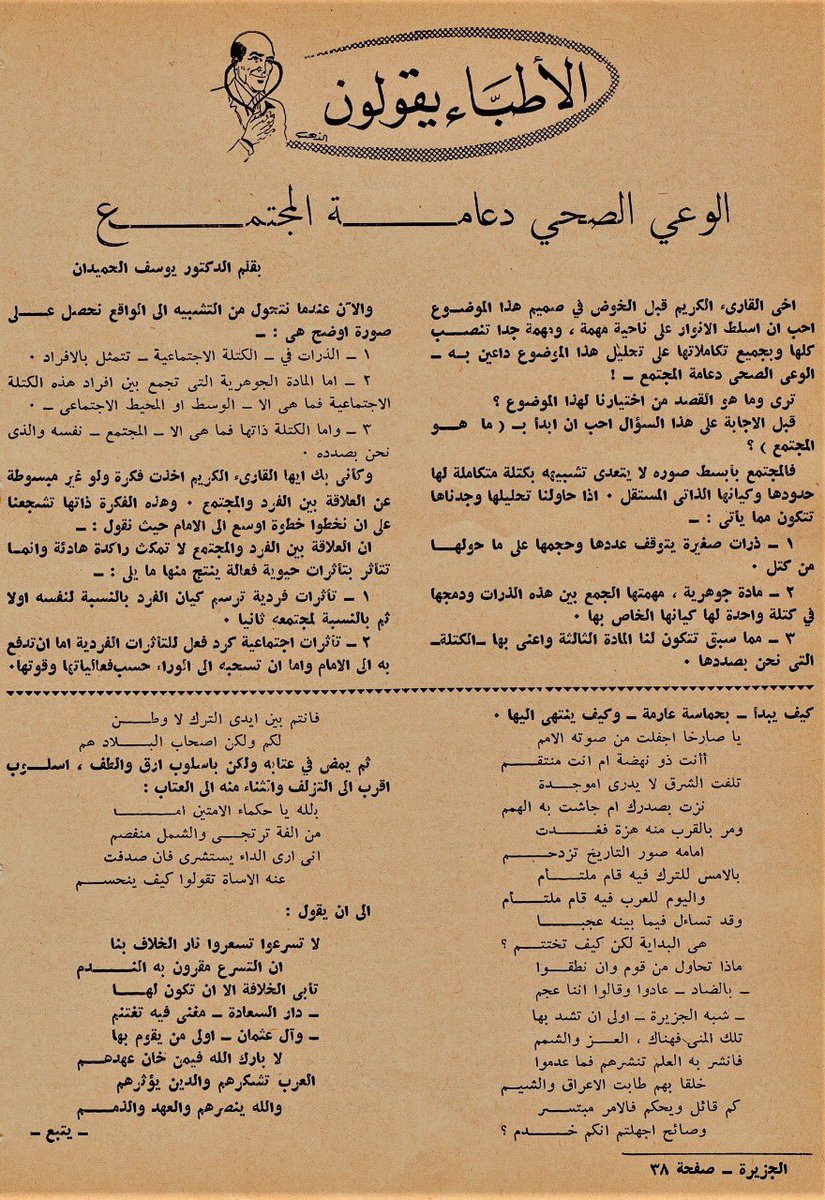 الأطبّاء يقولون
الوعي الصحي دعامـــة المجتمـــع
بقلم الدكتور يوسف الحميدان
اخى القارىء الكريم قبل الخوض في صميم هذا الموضوع
احب ان اسلط الانوار على ناحية مهمة ، ومهمة جدا تنصب
كلها وبجميع تكاملاتها على تحليل هذا الموضوع داعين به ــ
الوعى الصحى دعامة المجتمع ــ !
ترى وما هو القصد من اختيارنا لهذا الموضوع ؟
قبل الاجابة على هذا السؤال احب ان ابدأ بـ ( ما هو
المجتمع ) ؟
فالمجتمع بأبسط صوره لا يتعدى تشبيهه بكتلة متكاملة لها
حدودها وكيانها الذاتى المستقل ٠ اذا حاولنا تحليلها وجدناها
تتكون مما يأتى : ــ
١ ــ ذرات صغيرة يتوقف عددها وحجمها على ما حولها
من كتل ٠
٢ ــ مادة جوهرية ، مهمتها الجمع بين هذه الذرات ودمجها
في كتلة واحدة لها كيانها الخاص بها ٠
٣ ــ مما سبق تتكون لنا المادة الثالثة واعنى بها ــالكتلةــ
التى نحن بصددها ٠
والآن عندما نتحول من التشبيه الى الواقع نحصل على
صورة اوضح هى : ــ
١ ــ الذرات في ــ الكتلة الاجتماعية ــ تتمثل بالافراد ٠
٢ ــ اما المادة الجوهرية التى تجمع بين افراد هذه الكتلة
الاجتماعية فما هى الا ــ الوسط او المحيط الاجتماعى ــ ٠
٣ ــ واما الكتلة ذاتها فما هى الا ــ المجتمع ــ نفسه والذى
نحن بصدده ٠
وكأنى بك ايها القارىء الكريم اخذت فكرة ولو غير مبسوطة
عن العلاقة بين الفرد والمجتمع ٠ وهذه الفكرة ذاتها تشجعنا
على ان نخطوا خطوة اوسع الى الامام حيث نقول : ــ
ان العلاقة بين الفرد والمجتمع لا تمكث راكدة هادئة وانما
تتأثر بتأثرات حيوية فعالة ينتج منها ما يلى : ــ
١ ــ تأثرات فردية ترسم كيان الفرد بالنسبة لنفسه اولا
ثم بالنسبة لمجتمعه ثانيا ٠
٢ ــ تأثرات اجتماعية كرد فعل للتأثرات الفردية اما ان تدفع
به الى الامام واما ان تسحبه الى الوراء حسب فعالياتها وقوتها٠
كيف يبدأ ــ بحماسة عارمة ــ وكيف ينتهى اليها ٠
يا صارخا اجفلت من صوته الامم
أأنت ذو نهضة ام انت منتقـــم
تلفت الشرق لا يدرى اموجــدة
نزت بصدرك ام جاشت به الهمم
ومر بالقرب منه هزة فغـــدت
امامه صور التاريخ تزدحـــم
بالامس للترك فيه قام ملتــأم
واليوم للعرب فيه قام ملتــأم
وقد تساءل فيما بينه عجبـــا
هى البداية لكن كيف تختتــم ؟
ماذا تحاول من قوم وان نطقــوا
ــ بالضاد ــ عادوا وقالوا اننا عجم
ــ شبه الجزيرة ــ اولى ان تشد بها
تلك المنى فهناك ، العــز والشمم
فانشر به العلم تنشرهم فما عدموا
خلقا بهم طابت الاعراق والشيــم
كم قائل ويحكم فالامر مبتســر
وصائح اجهلتم انكم خـــدم ؟
فانتم بين ايدى الترك لا وطــن
لكم ولكن اصحاب البــلاد هم
ثم يمض في عتابه ولكن باسلوب ارق والطف ، اسلوب
اقرب الى التزلف والثناء منه الى العتاب :
بلله يا حكماء الامتين امـــا
من الفة ترتجــى والشمل منفصم
انى ارى الداء يستشرى فان صدفت
عنه الاساة تقولوا كيف ينحســم
الى ان يقول :
لا تسرعوا تسعروا نار الخلاف بنا
ان التسرع مقرون به النــدم
تأبى الخلافة الا ان تكون لهــا
ــ دار السعادة ــ مغنى فيه تغتنم
ــ وآل عثمان ــ اولى من يقوم بها
لا بارك الله فيمن خان عهدهــم
العرب تشكرهم والدين يؤثرهم
والله ينصرهم والعهد والذمــم
ــ يتبع ــ
الجزيرة ــ صفحة ٣٨